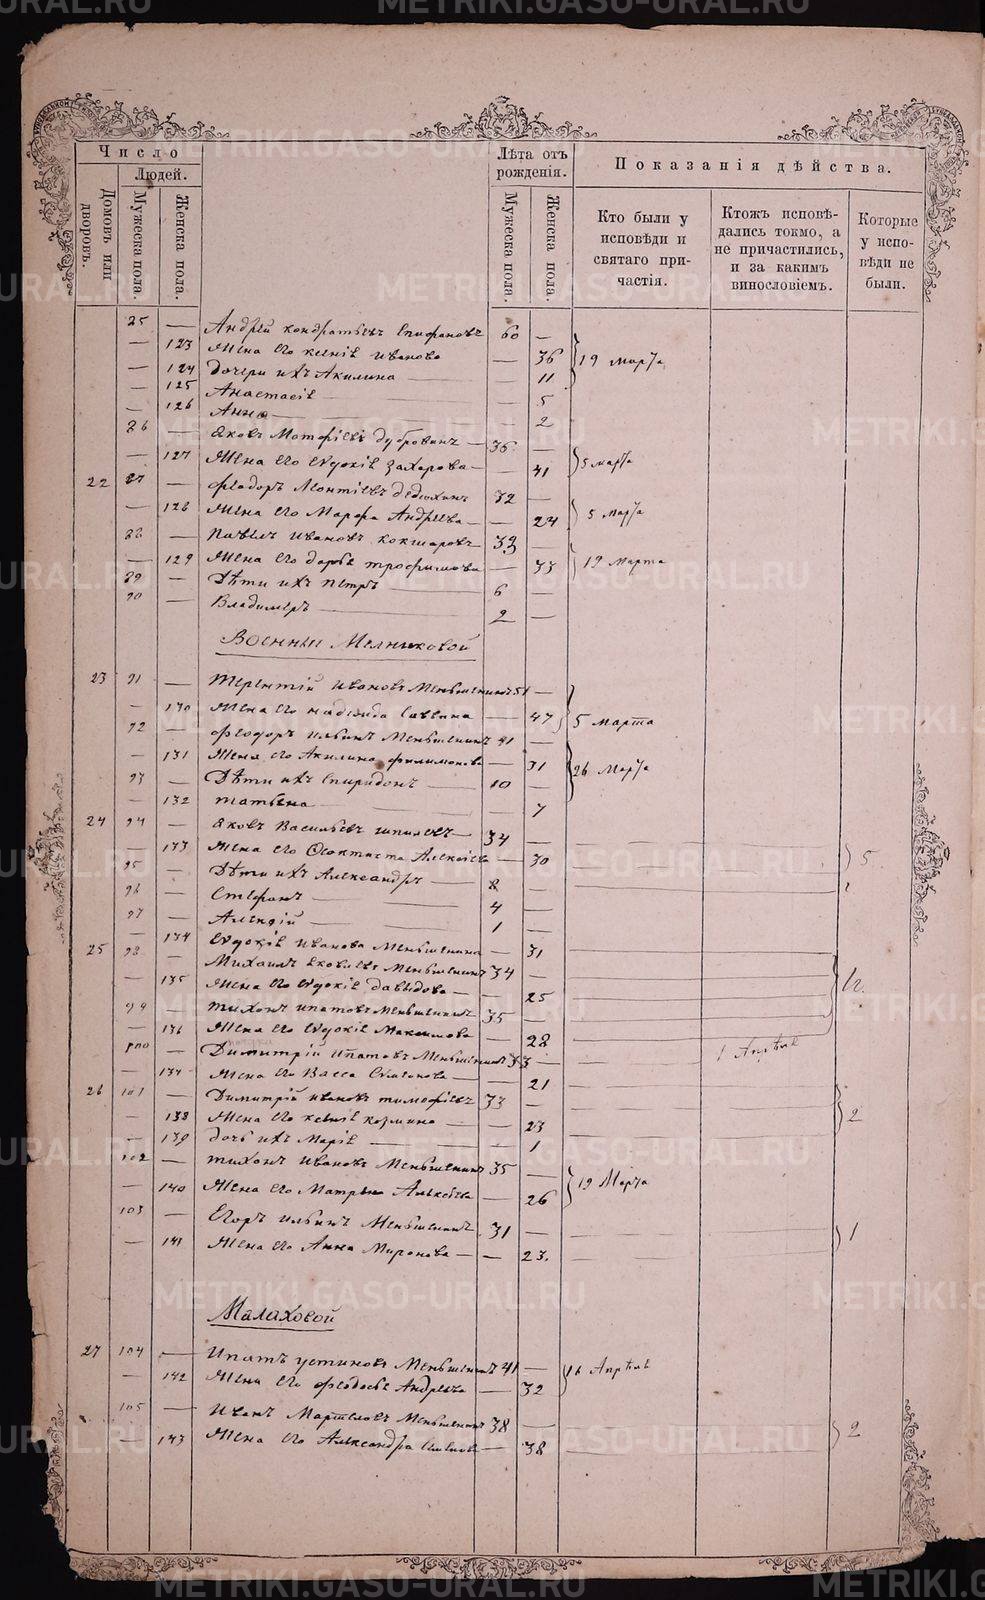 Число
Людей.
Домовъ или дворовъ.
Мужеска пола.
Женска пола.
Лѣта отъ рожденія.
Мужеска пола.
Женска пола.
Показанія дѣйства.
Кто были у исповѣди и святаго причастія.
Ктожъ исповѣдались токмо, а не причастились, и за какимъ винословіемъ.
Которые у исповѣди не были.
— Андрей Кондратьевъ 60 —
— 123 Жена его Ксенія Иванова — 36 19 Марта
— 124 Дочери ихъ Акилина — 11
— 125 Анастасія — 5
— 126 Анна — 2
86 — Яковъ Матфіевъ Дубровинъ 36 —
— 127 Жена его Евдокія Захарова — 41 5 марта
22 87 — Феодоръ Леонтіевъ 32 —
— 128 Жена его Марфа Андреева — 24 5 Марта
88 — Павелъ Ивановъ Кокшаровъ 32 —
— 129 Жена его Дарья Трофимова — 33 19 Марта
89 — Дѣти ихъ Петръ 6 —
90 — Владимеръ 2 —
Мелниковой
23 91 — Терентій Ивановъ Меньшенинъ 51 —
— 130 Жена его Надежда Саввина — 47 5 Марта
92 — Феодоръ Ильинъ Меньшенинъ 41 —
— 131 Жена его Акилина Филимонова — 31 26 Марта
93 — Дѣти ихъ Спиридонъ 10 —
— 132 Татьяна — 7
24 94 — Яковъ Васильевъ 34 —
— 133 Жена его Феоктиста Алексіева — 30 5
95 — Дѣти ихъ Александръ 8 —
96 — Стефанъ 4 —
97 — Алексій 1 —
— 134 Евдокія Иванова Меньшенина — 31
25 98 — Михаилъ Яковлевъ Меньшенинъ 34 —
— 135 Жена его Евдокія Давыдова — 25
99 — Тихонъ Ипатовъ Меньшенинъ 35 —
— 136 Жена его Евдокія Максимова — 28
100 — Димитрій Ипатовъ Меньшенинъ 33 — 1 Апрѣля
— 137 Жена его Васса Семенова — 21
26 101 — Димитрій Ивановъ Тимофіевъ 33 —
— 138 Жена его Ксенія Козмина — 23 2
— 139 Дочь ихъ Марія — 1
102 — Тихонъ Ивановъ Меньшенинъ 35 —
— 140 Жена его Матрена Алексіева — 26 19 Марта
103 — Егоръ Ильинъ Меньшенинъ 31 —
— 141 Жена его Анна Миронова — 23. 1
Малаховой
27 104 — Ипатъ Устиновъ Меньшенинъ 41 — 16 Апрѣля
— 142 Жена его Феодосья Андреева — 32
105 — Иванъ Меньшенинъ 38 —
— 143 Жена его Александра — 38 2
METRIKI.GASO-URAL.RU